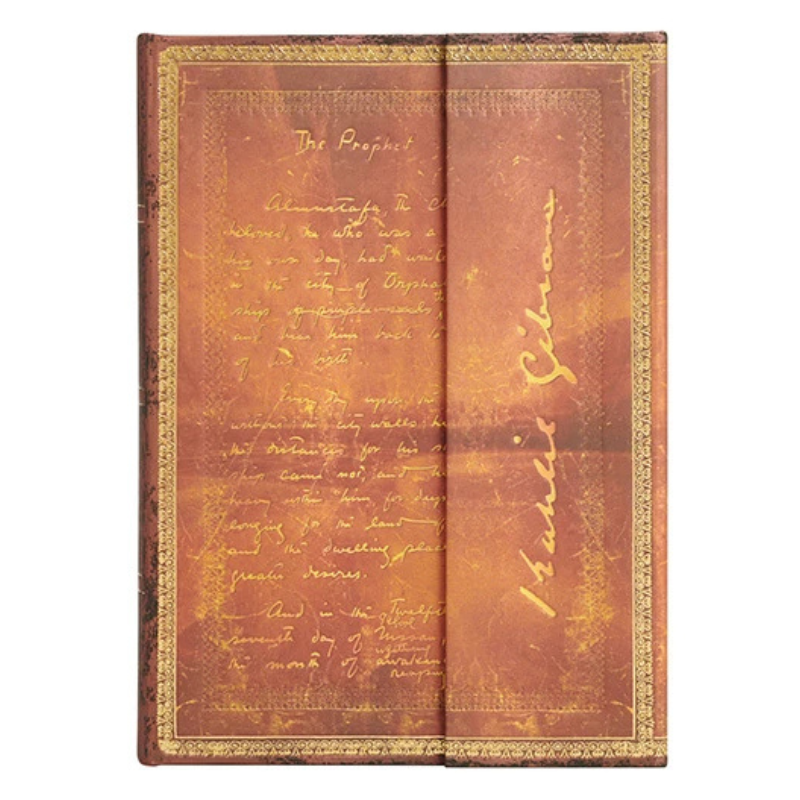 The Prophet
Almustafa, the Ch
beloved, he who was a
his own day, had waite
in the city of Orphal
ship
and bear him back to
of his birth.
Every day upon the
without the city walls he
the distances for his s
ship came not, and he
heavy within him, for days
longing for the land
and the dwelling place
greater desires.
And in the Twelfth
seventh day of Nissan,
the month of awaken
reaping
Kahlil Gibran